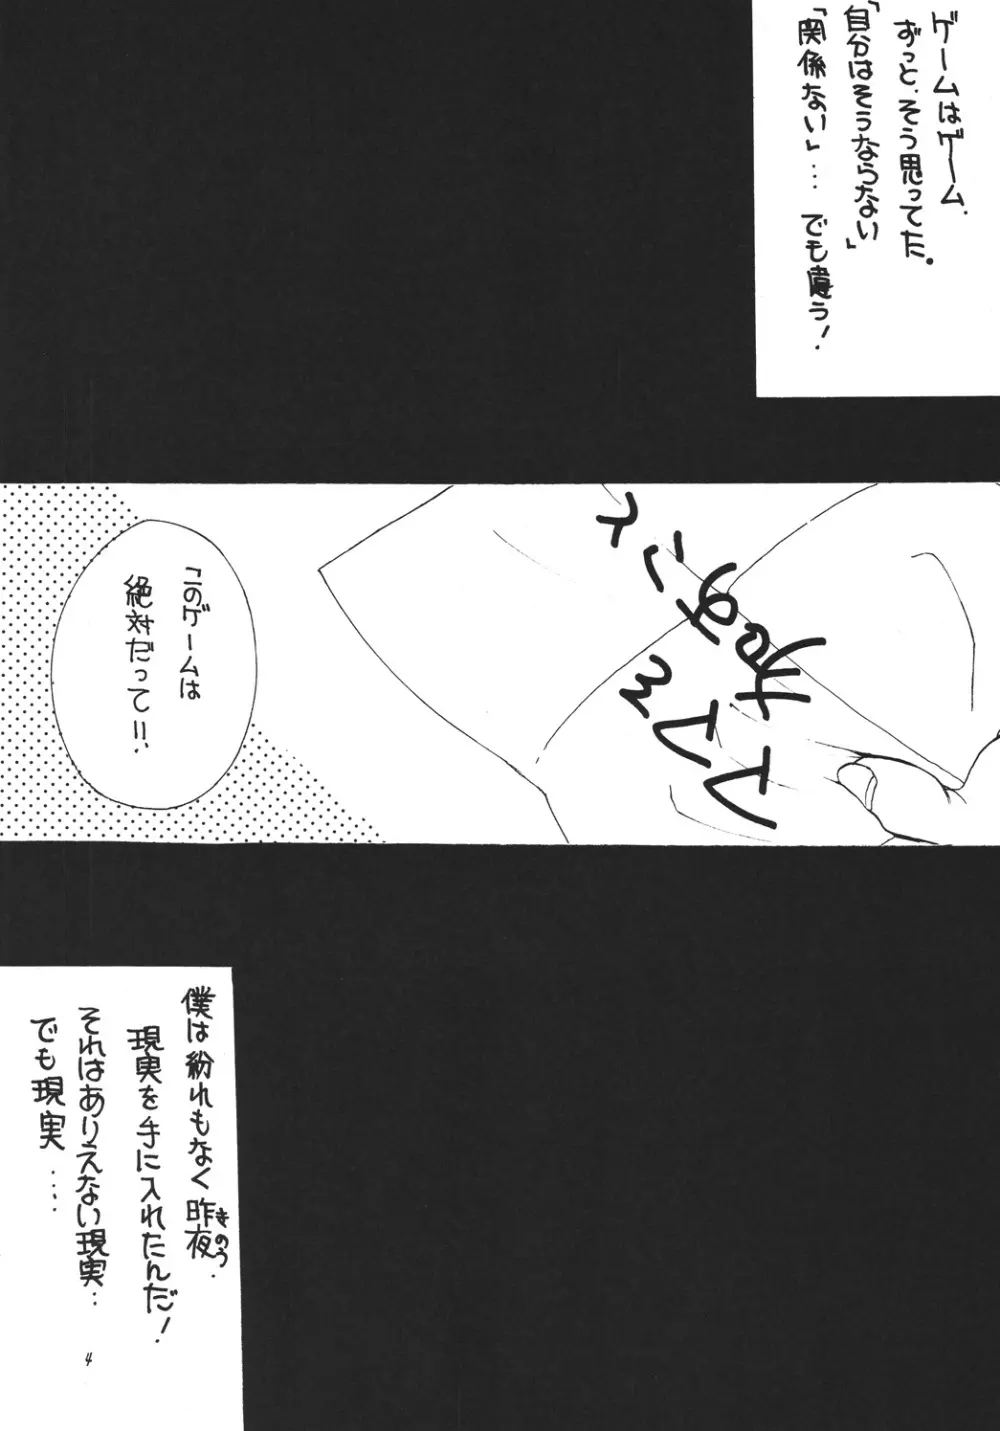 ゲームはゲーム.
ずっと、そう思ってた。
「自分はそうならない」
「関係ない」… でも違う!
「このゲームは
絶対だって!!」
僕は紛れもなく昨夜.
きのう
現実を手に入れたんだ!
それはありえない現実…
でも現実……
4